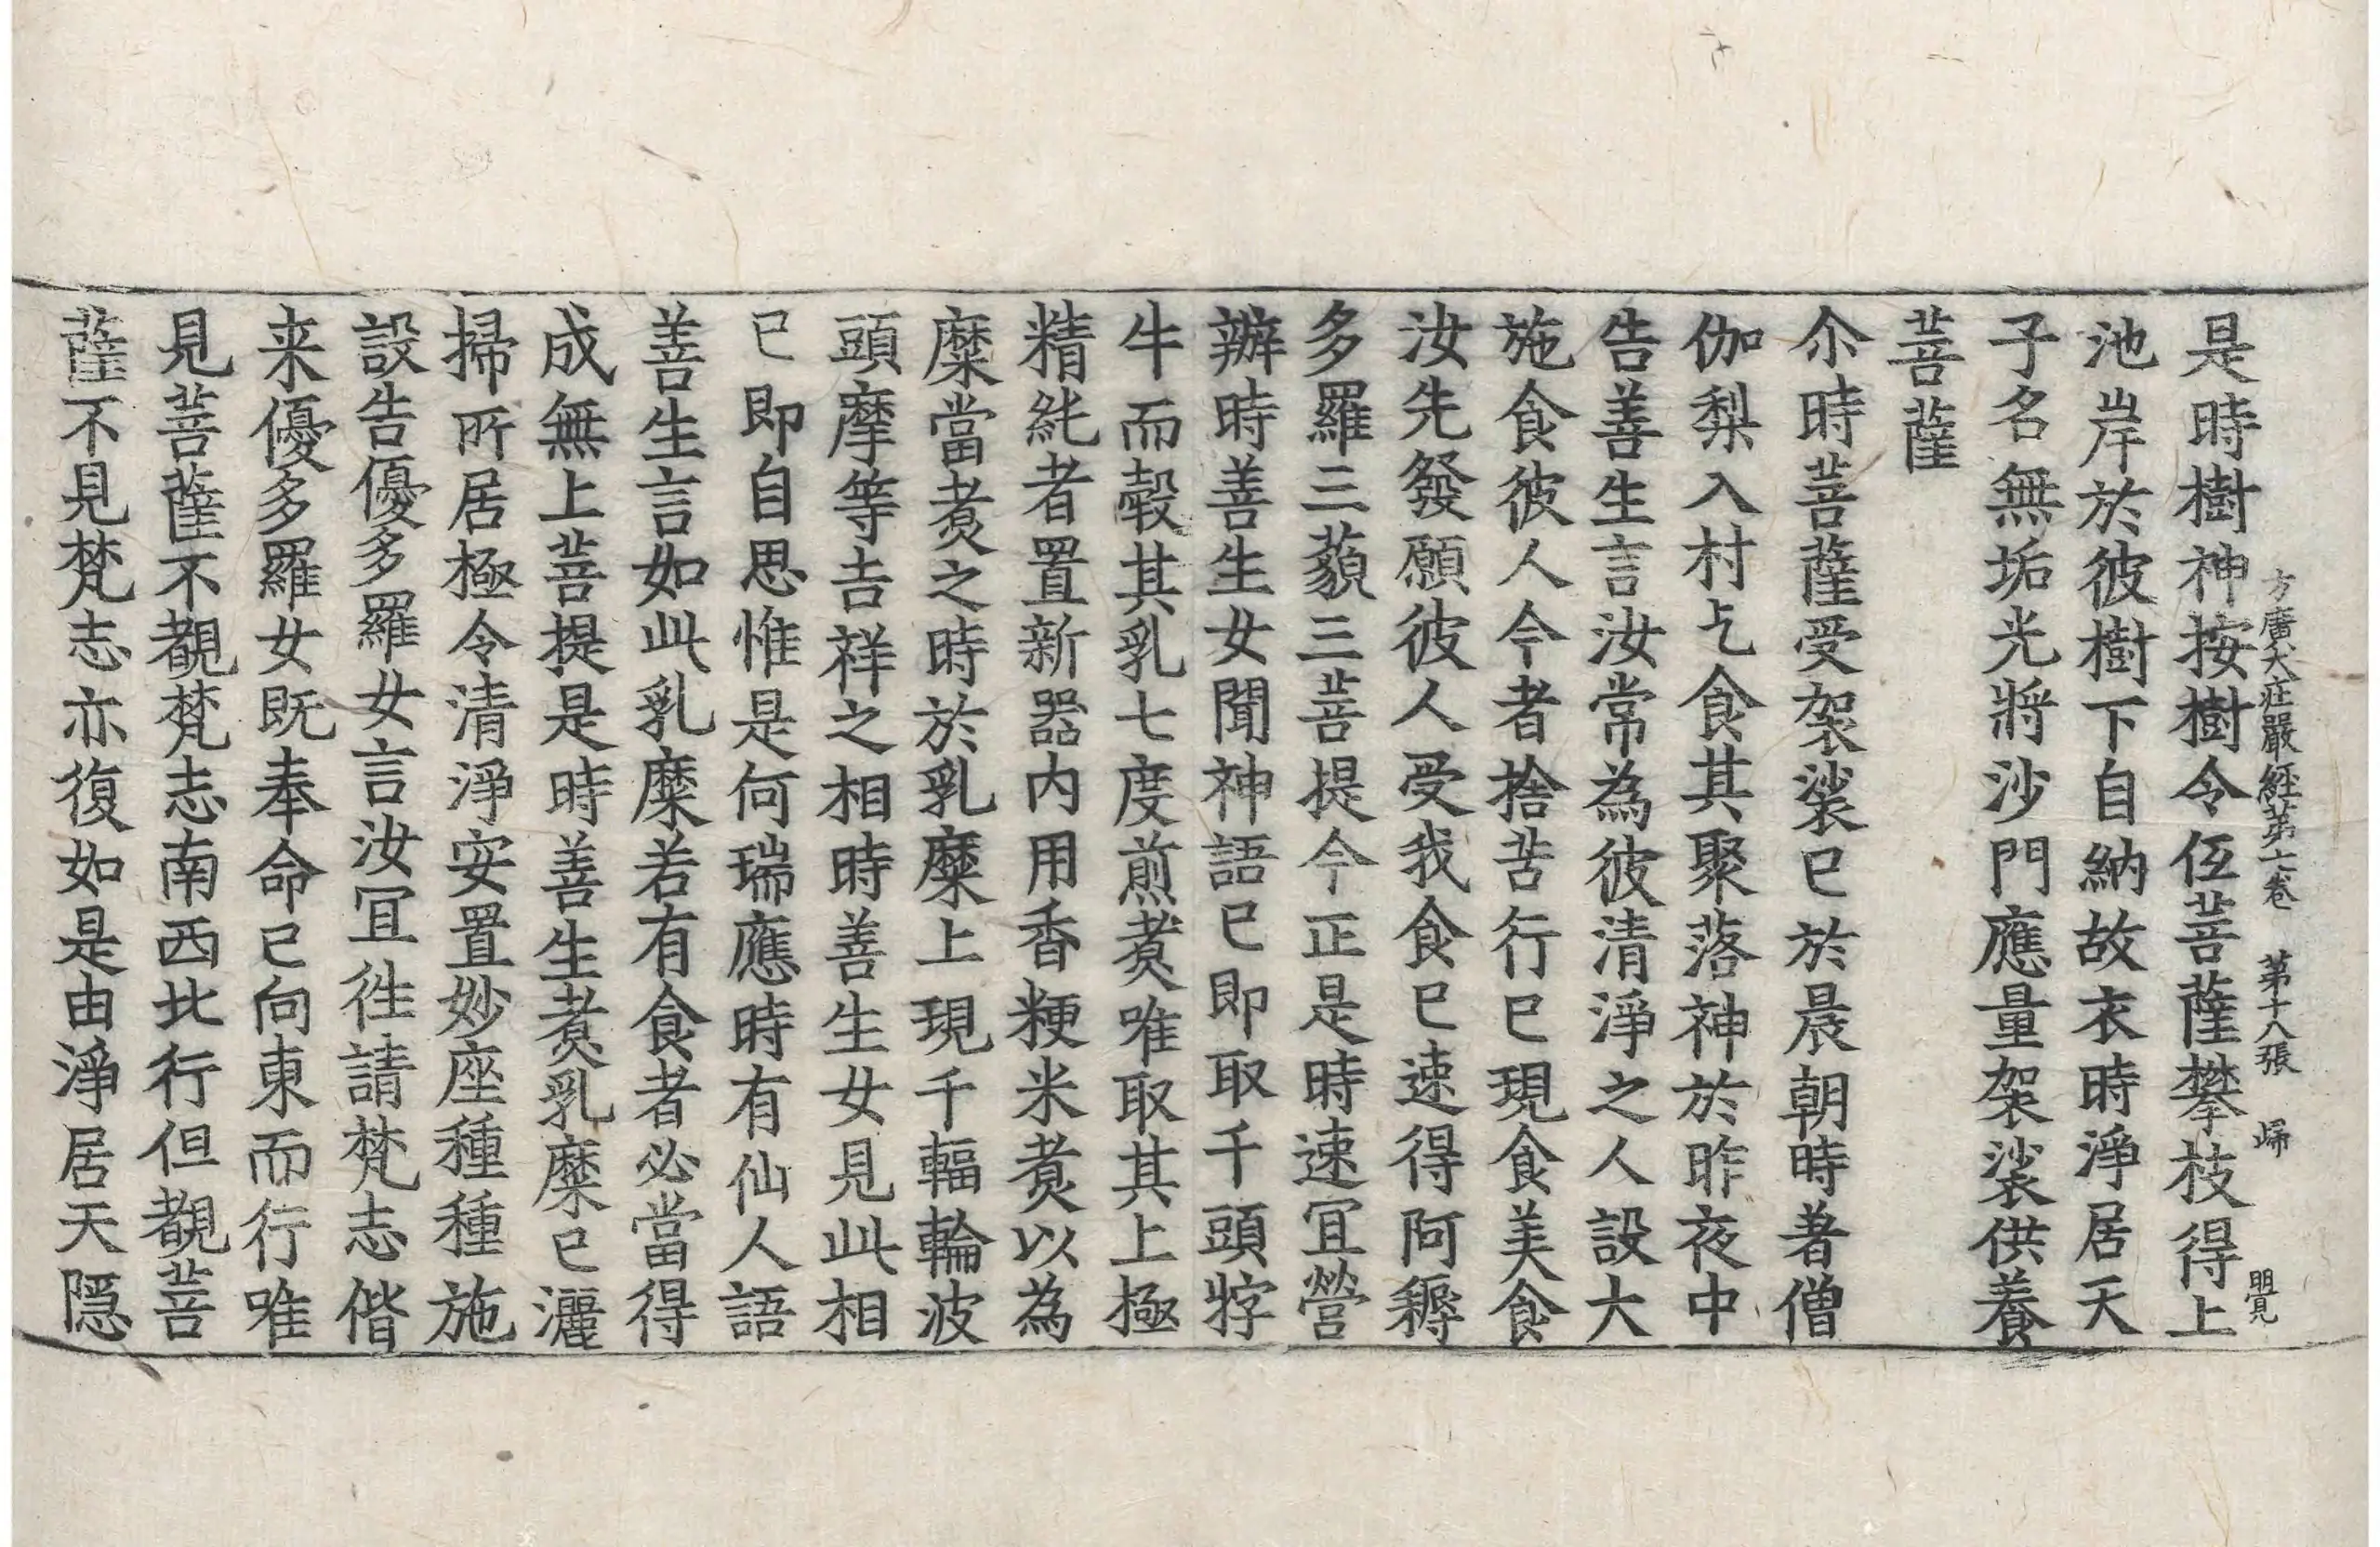 方廣大莊嚴經第七卷 第十八張 歸
是時樹神按樹令低菩薩攀枝得上
池岸於彼樹下自納故衣時淨居天
子名無垢光將沙門應量袈裟供養
菩薩
尒時菩薩受袈裟已於晨朝時著僧
伽梨入村乞食其聚落神於昨夜中
告善生言汝常為彼清淨之人設大
施食彼人今者捨苦行已現食美食
汝先發願彼人受我食已速得阿耨
多羅三藐三菩提今正是時速冝營
辦時善生女聞神語已即取千頭牸
牛而㲉其乳七度煎煑唯取其上極
精純者置新器内用香粳米煑以為
糜當煑之時於乳糜上現千輻輪波
頭摩等吉祥之相時善生女見此相
已即自思惟是何瑞應時有仙人語
善生言如此乳糜若有食者必當得
成無上菩提是時善生煑乳糜已灑
掃所居極令清淨安置妙座種種施
設告優多羅女言汝冝徃請梵志偕
来優多羅女既奉命已向東而行唯
見菩薩不覩梵志南西北行但覩菩
薩不見梵志亦復如是由淨居天隠